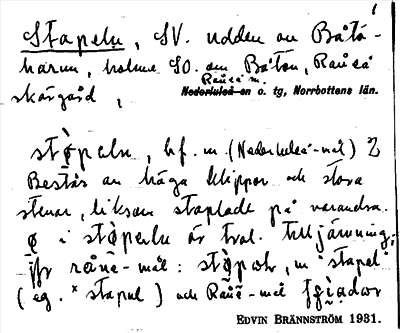 Stapeln, SV. udden av Båtö-
harun, holme SO. om Båtön, Råneå
Råneå sn.
skärgård, Nederluleå sn o. tg, Norrbottens län.
stø̀peln, bf. m. (Nederluleå-mål)
Består av höga klippor och stora
stenar, liksom staplade på varandra.
ø i stø̀peln är tval. till jämning;
jfr råne-mål: m "stapel"
(eg. *stapul) och Råne-mål
EDVIN BRÄNNSTRÖM 1931.